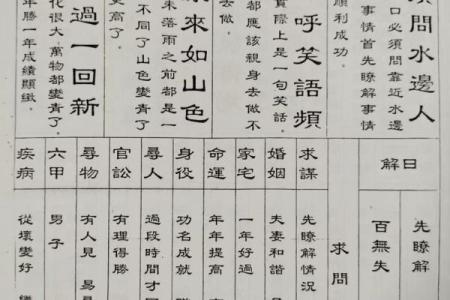 問水邊人
口必須問靠近水邊
事情首先瞭解事情
順利成功。
呼笑語頻
實際上是一句笑話。
都應該親身去做不
去做。
來如山色
未落雨之前都是一
不同了山色變青了
更高了。
過一回新
化很大萬物都變青了
年勝一年成績顯緻。
日解
先瞭解
百無失
求問
求謀 先瞭解情況
婚姻 夫妻和諧
家宅 一年好過
命運 年年提高
身役 功名成就
尋人 過段時間才
官訟 有理得勝
尋物 有人見 易
六甲 男子
疾病 從壞變好